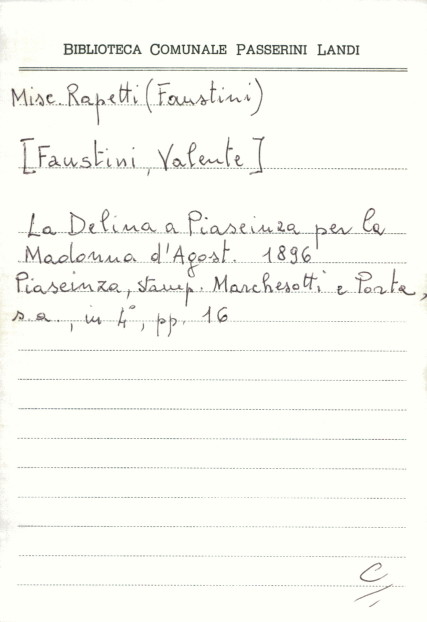 BIBLIOTECA COMUNALE PASSERINI LANDI
Misc. Rapetti (Faustini)
[Faustini, Valente]
La Delina a Piaseinza per la
Madonna d'Agost. 1896
Piaseinza, stamp. Marchesotti e Porta,
s.a., in 4°, pp. 16
C